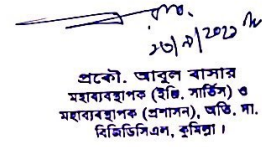 ২৩/৭/২০২০
প্রকৌ. আবুল বাসার
মহাব্যবস্থাপক (ইঞ্জি. সার্ভিস) ও
মহাব্যবস্থাপক (প্রশাসন), অতি. দা.
বিজিডিসিএল, কুমিল্লা।